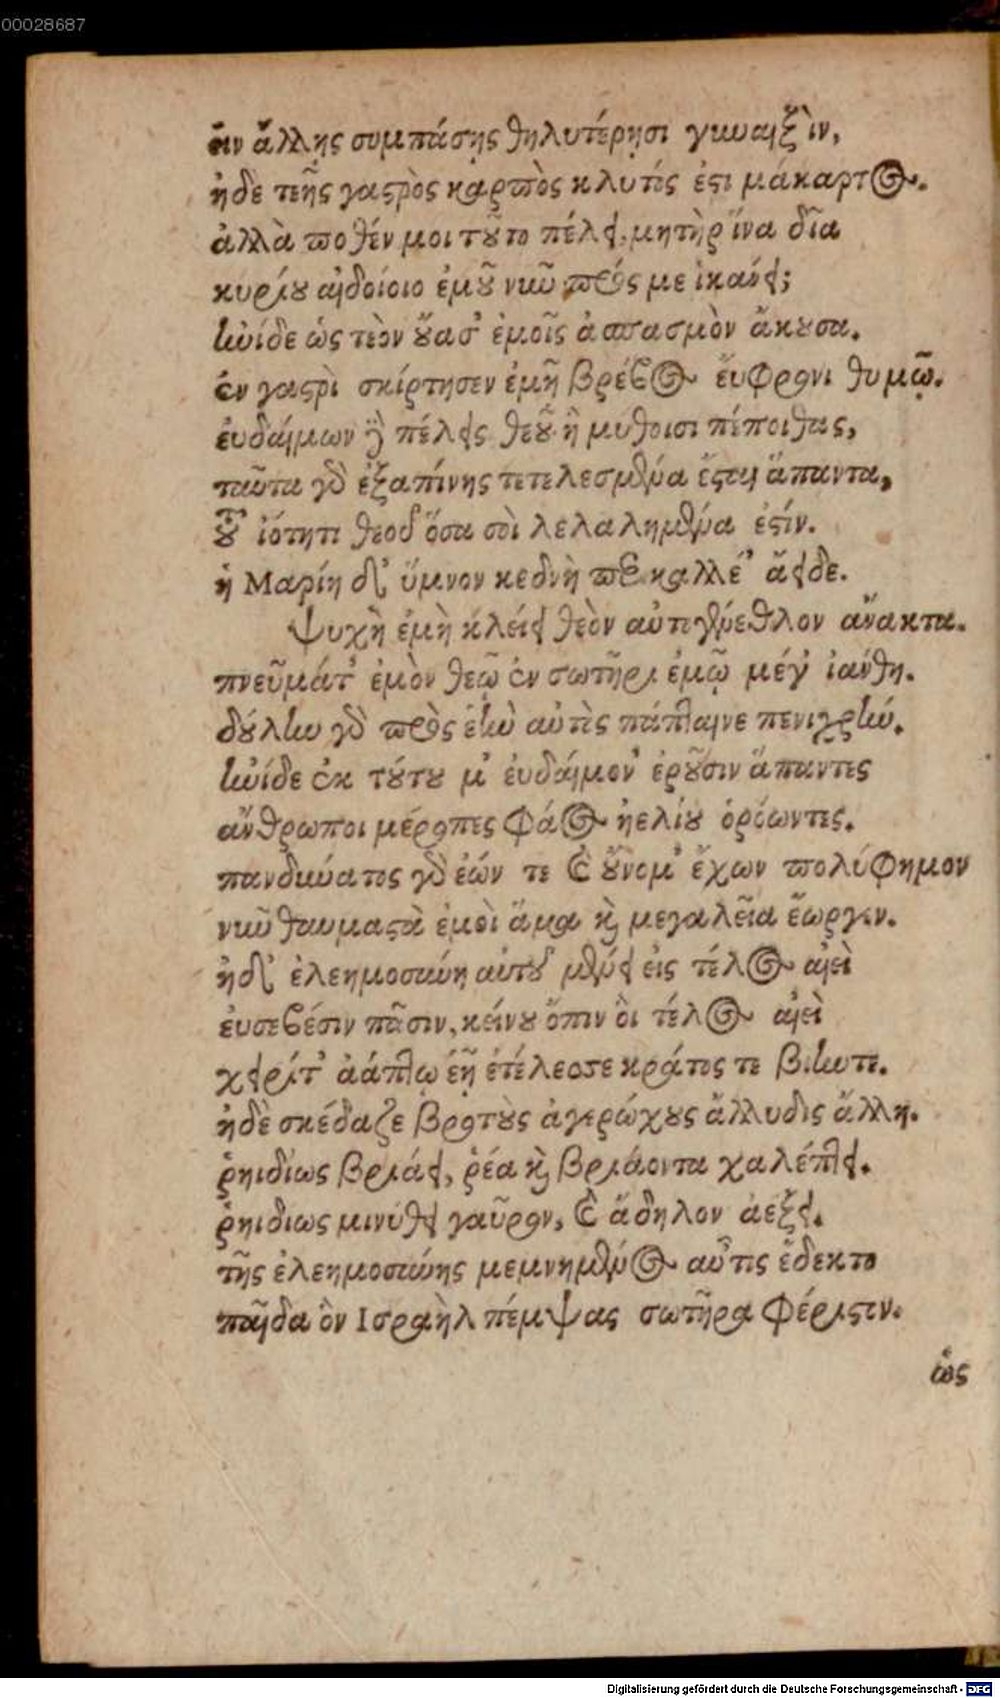 00028687
ἐν ἄλλῃς συμπάσῃς θηλυτέρῃσι γυναιξὶν,
ἠδὲ τεῆς γαστρὸς καρπὸς κλυτός ἐστι μάκαρτος.
ἀλλὰ ποθέν μοι τοῦτο πέλει, μητὴρ ἵνα δῖα
κυρίου αἰδοίοιο ἐμοῦ νῦν πρός με ἱκάνει;
ἠνίδε ὡς τεὸν οὔασ' ἐμοῖς ἀσπασμὸν ἄκουσα.
ἐν γαστρὶ σκίρτησεν ἐμῇ βρέφος ἔυφρονι θυμῷ.
ἐυδαίμων δὲ πέλεις θεοῦ ἣ μύθοισι πέποιθας,
ταῦτα γὰρ ἐξαπίνης τετελεσμένα ἔσται ἅπαντα,
τοῦ ἰότητι θεοῦ ὅσα σοὶ λελαλημένα ἐστίν.
ἡ Μαρίη δ' ὕμνον κεδνὴ περικαλλέ' ἄειδε.
Ψυχὴ ἐμὴ κλείει θεὸν αὐτογένεθλον ἄνακτα.
πνεῦμά τ' ἐμὸν θεῷ ἐν σωτῆρι ἐμῷ μέγ' ἰάνθη.
δούλην γὰρ πρὸς ἑὴν αὐτὶς πάπταινε πενιχρήν.
ἠνίδε ἐκ τούτου μ' ἐυδαίμον' ἐροῦσιν ἅπαντες
ἄνθρωποι μέροπες φάος ἠελίου ὁρόωντες.
πανδυνατος γὰρ ἐών τε καὶ οὔνομ' ἔχων πολύφημον
νῦν θαυμαστὰ ἐμοὶ ἅμα καὶ μεγαλεῖα ἔωργεν.
ἠδ' ἐλεημοσύνη αὐτοῦ μένει εἰς τέλος αἰεὶ
ἐυσεβέσιν πᾶσιν, κείνου ὄπιν οἳ τέλος αἰεὶ
χειρί τ' ἀάπτῳ ἑῇ ἐτέλεσσε κράτος τε βίην τε.
ἠδὲ σκέδαζε βροτοὺς ἀγερώχους ἄλλυδις ἄλλῃ.
ῥηιδίως βριάει, ῥέα καὶ βριάοντα χαλέπτει.
ῥηιδιως μινύθει γαῦρον, καὶ ἄδηλον ἀέξει.
τῆς ἐλεημοσύνης μεμνημένος αὖτις ἔδεκτο
παῖδα ὃν Ισραὴλ πέμψας σωτῆρα φέριστον.
ὡς
Digitalisierung gefördert durch die Deutsche Forschungsgemeinschaft - DFG